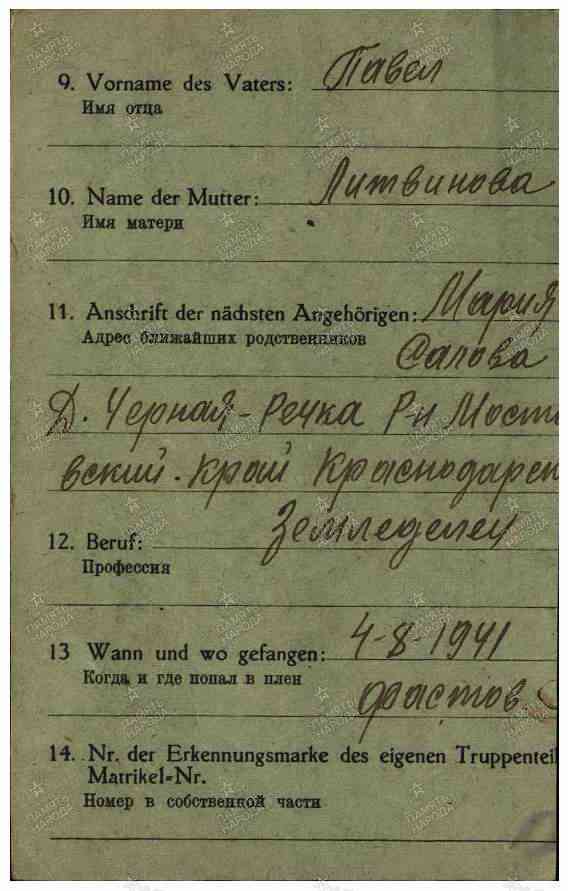 9. Vorname des Vaters: Павел
Имя отца
10. Name der Mutter: Литвинова
Имя матери
11. Anschrift der nächsten Angehörigen: Мария
Адрес ближайших родственников Сапова
Д. Черная-Речка Р-н Мосто
вский. край Краснодарск
12. Beruf: Земледелец
Профессия
13 Wann und wo gefangen: 4-8-1941
Когда и где попал в плен Фастов
14. Nr. der Erkennungsmarke des eigenen Truppenteil
Matrikel-Nr.
Номер в собственной части